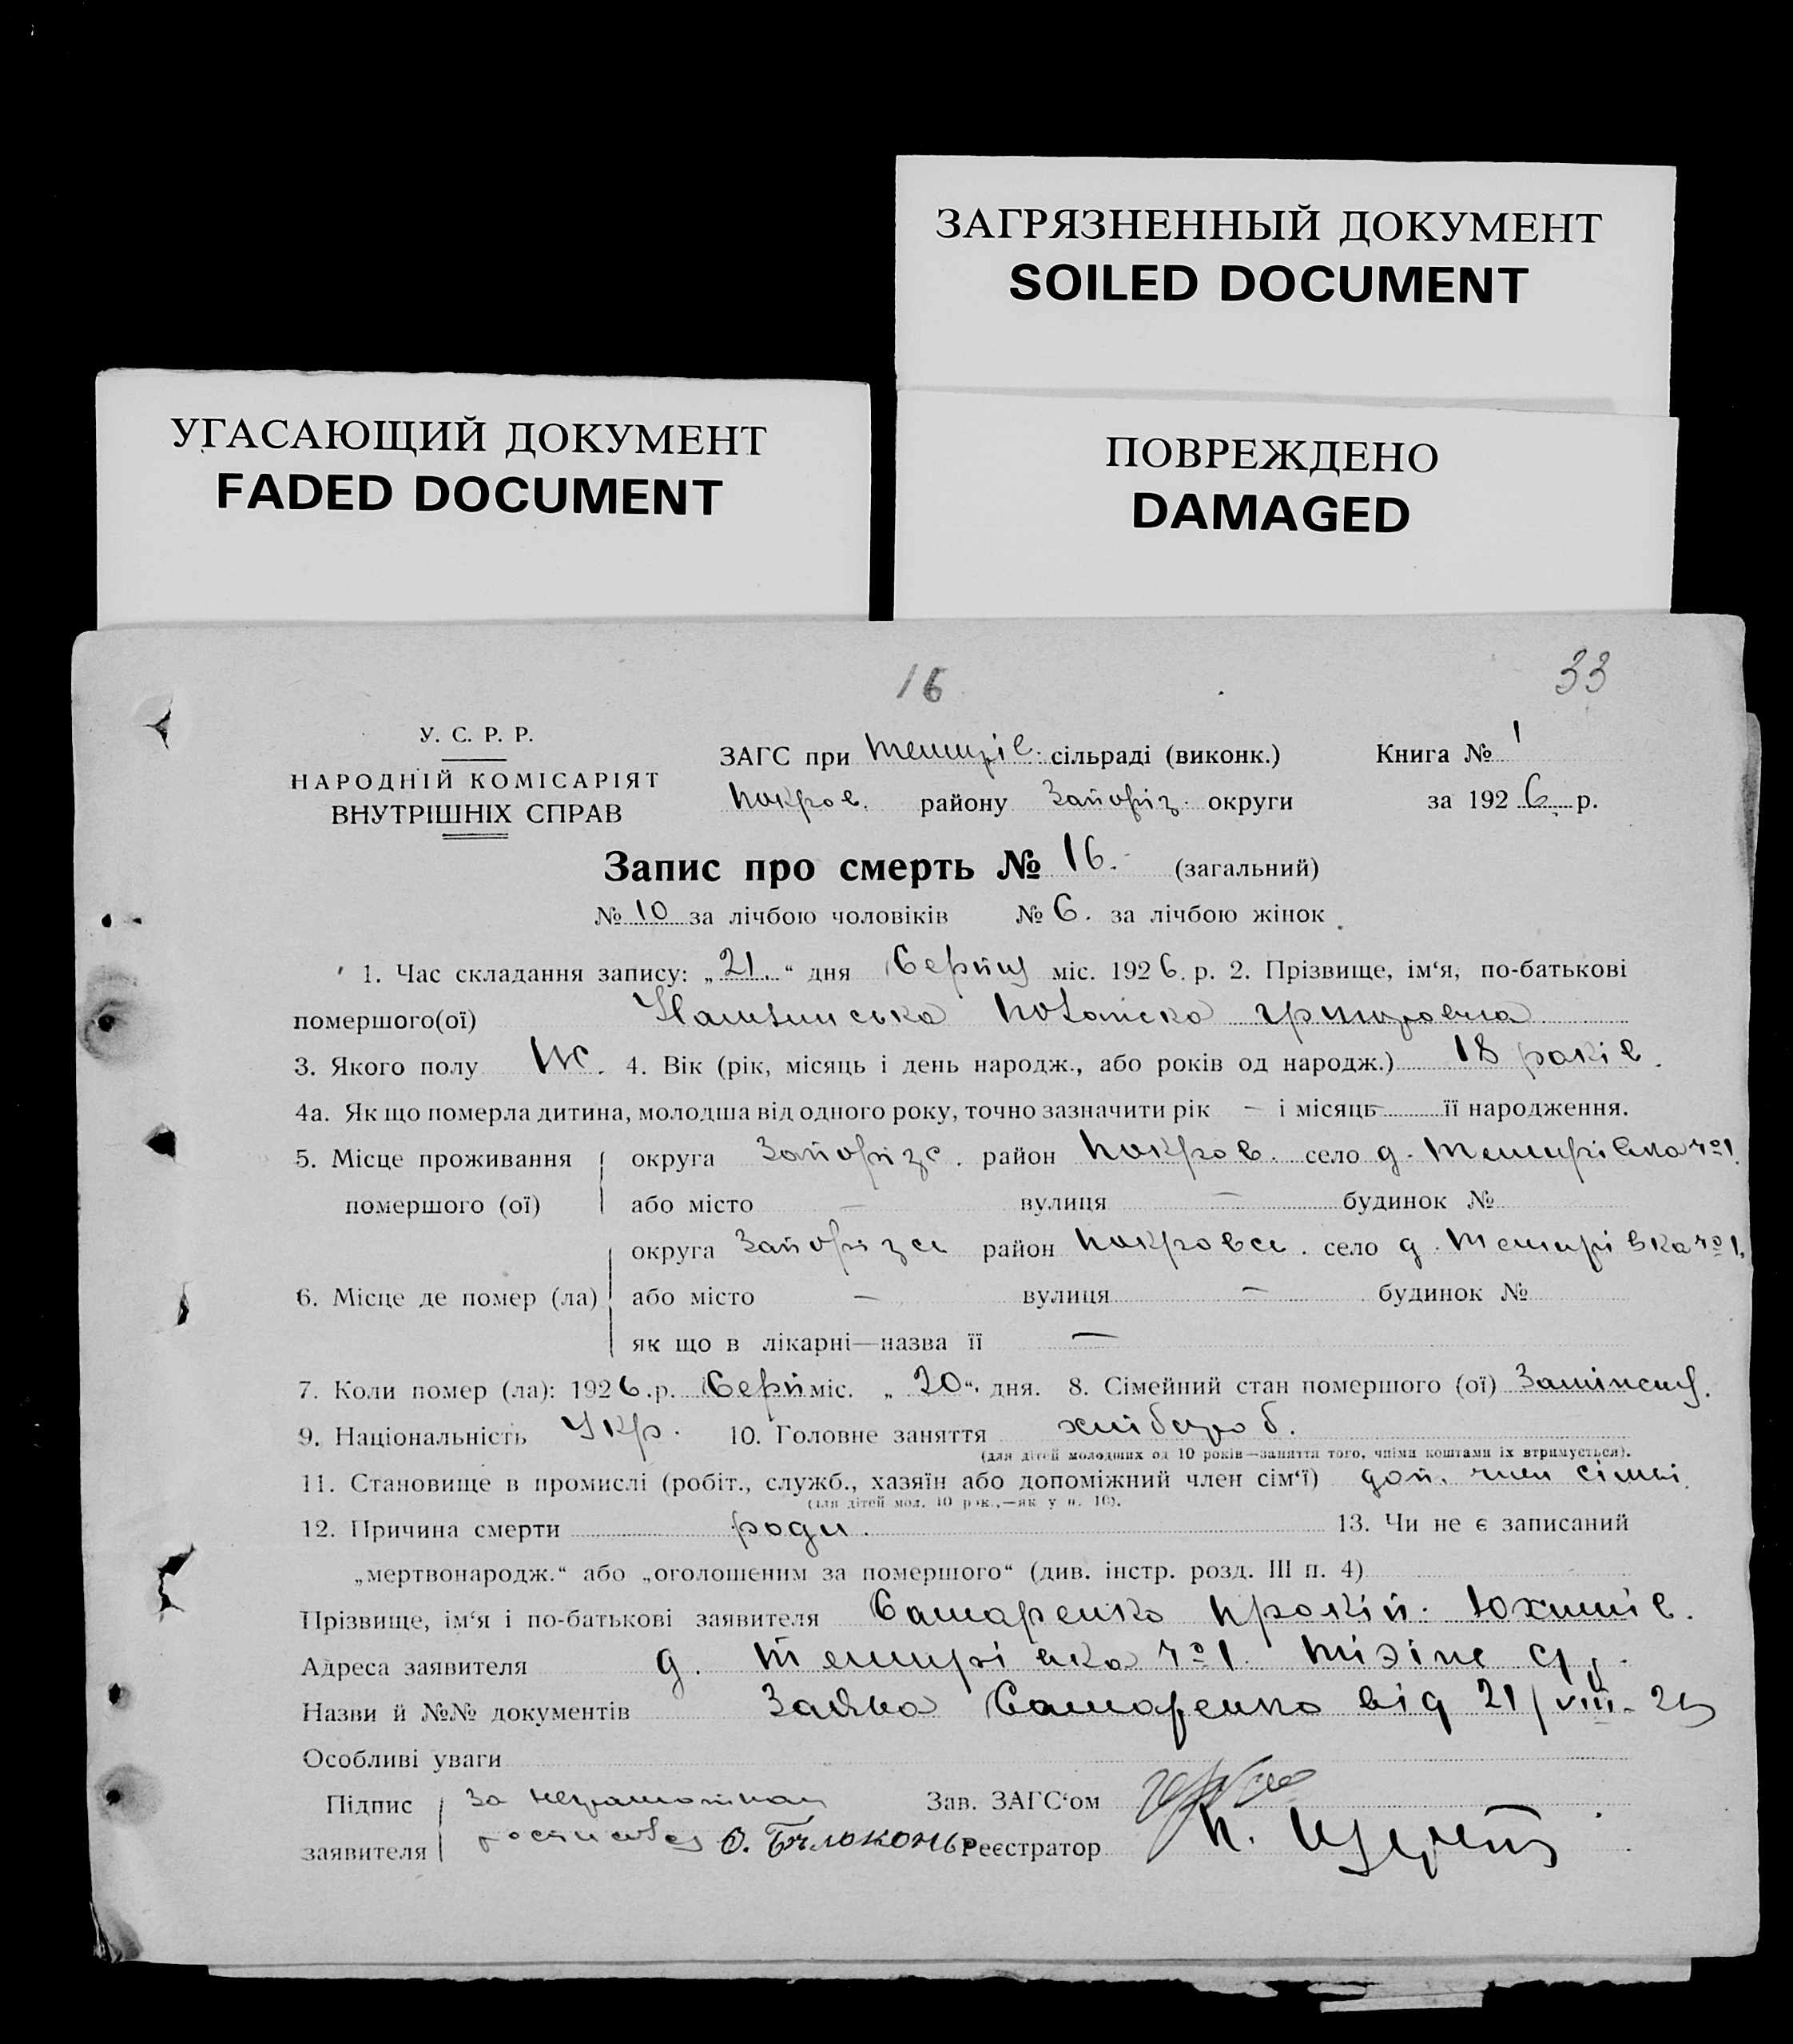 ЗАГРЯЗНЕННЫЙ ДОКУМЕНТ
SOILED DOCUMENT
УГАСАЮЩИЙ ДОКУМЕНТ
FADED DOCUMENT
ПОВРЕЖДЕНО
DAMAGED
16 33
У. С. Р. Р.
НАРОДНІЙ КОМІСАРІЯТ
ВНУТРІШНІХ СПРАВ
ЗАГС при Темирів. сільраді (виконк.) Книга № 1
Покров. району Запоріз. округи за 1926 р.
Запис про смерть № 16. (загальний)
№ 10 за лічбою чоловіків № 6. за лічбою жінок
1. Час складання запису: „21.“ дня Серпня міс. 1926. р. 2. Прізвище, ім‘я, по-батькові
помершого(ої)
3. Якого полу Ж. 4. Вік (рік, місяць і день народж., або років од народж.) 18 років.
4а. Як що померла дитина, молодша від одного року, точно зазначити рік – і місяць – її народження.
5. Місце проживання округа Запорізс. район Покров. село д. Темирівка №1.
помершого (ої) або місто — вулиця — будинок №
округа Запорізсь район Покровсь. село д. Темирівка №1.
6. Місце де помер (ла) або місто — вулиця — будинок №
як що в лікарні—назва її —
7. Коли помер (ла): 1926.р. Серп міс. „20“. дня. 8. Сімейний стан помершого (ої)
9. Національність Укр. 10. Головне заняття хлібороб.
(для дітей молодших од 10 років—заняття того, чиїми коштами їх втримується).
11. Становище в промислі (робіт., служб., хазяїн або допоміжний член сім‘ї) доп. член сімьі.
(для дітей мол. 10 рок.,—як у п. 10).
12. Причина смерти роди. 13. Чи не є записаний
„мертвонародж.“ або „оголошеним за помершого“ (див. інстр. розд. III п. 4)
Прізвище, ім‘я і по-батькові заявителя Самаренко Прокіп. Юхимів.
Адреса заявителя д. Темирівка №1.
Назви й №№ документів Заява Самаренко від 21/VIII-26
Особливі уваги
Підпис За неграмотной Зав. ЗАГС‘ом
заявителя О. Білоконь Реєстратор